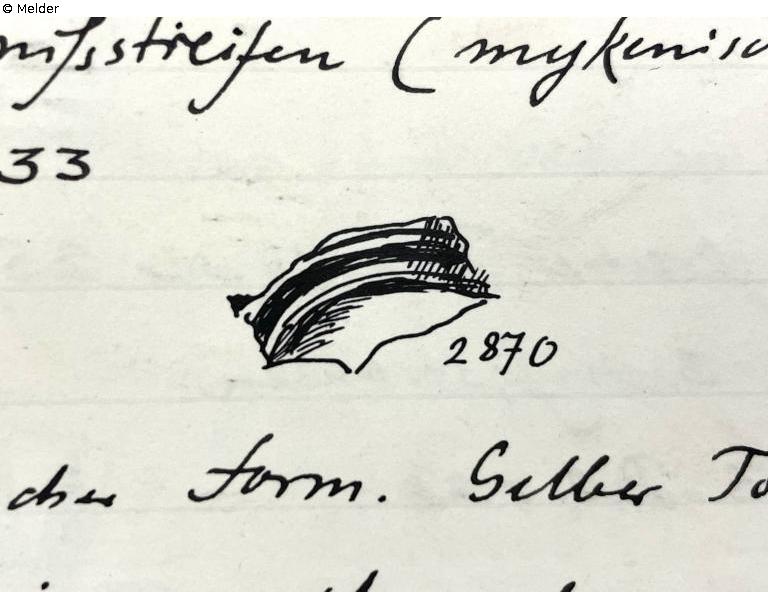 © Melder
nißstreifen (mykenisc
33
2870
cher Form. Gelber To